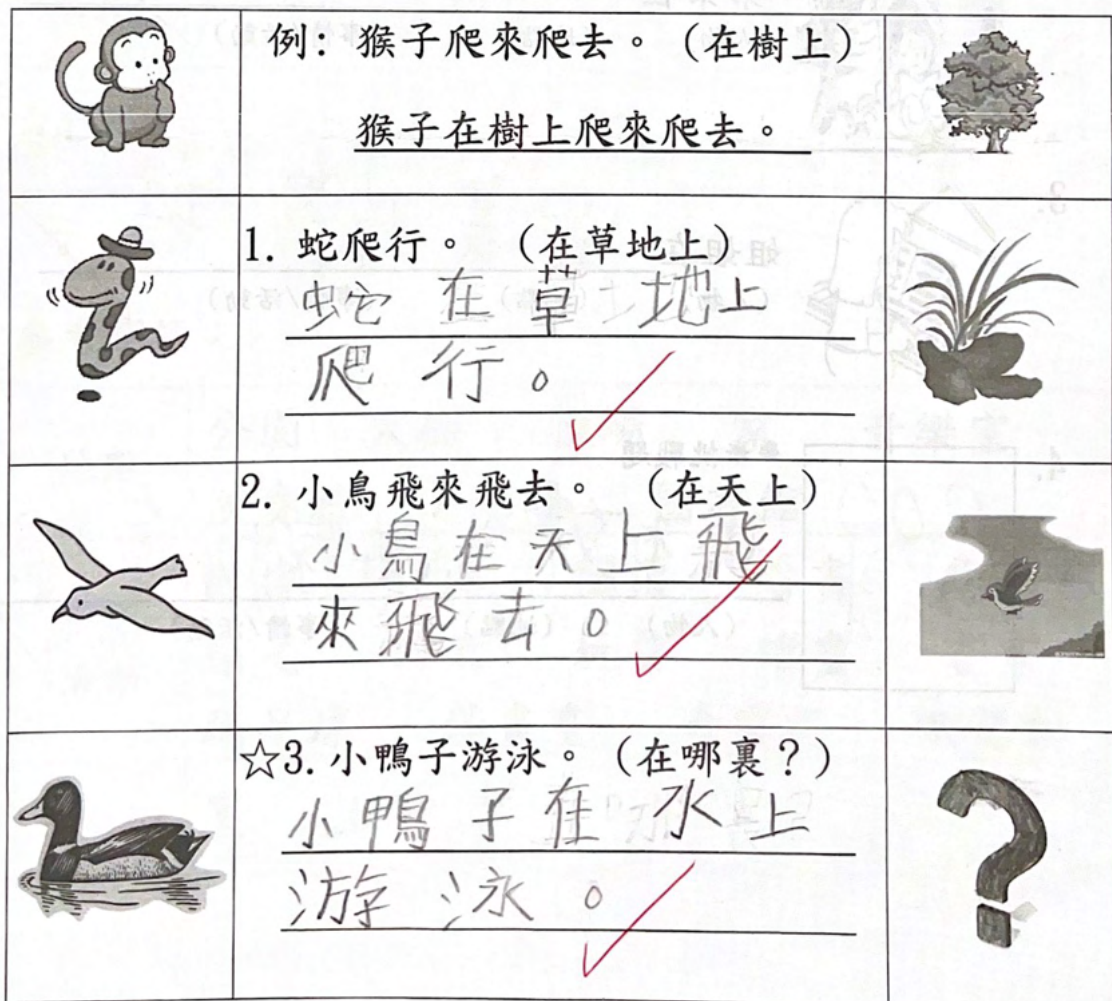 例: 猴子爬來爬去。(在樹上)
猴子在樹上爬來爬去。
1. 蛇爬行。 (在草地上)
蛇在草地上
爬行。
2. 小鳥飛來飛去。 (在天上)
小鳥在天上飛
來飛去。
☆3. 小鴨子游泳。(在哪裏?)
小鴨子在水上
游泳。
?